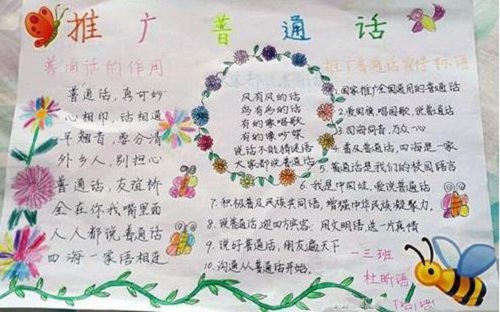 推广普通话
普通话的作用
普通话，真奇妙
心相印，话相通
平翘音，要分清
外乡人，别担心
普通话，友谊桥
全在你我嘴里面
人人都说普通话
四海一家语相连
风有风的话
鸟有鸟的话
有的像唱歌
有的像吵架
说话不能猜谜语
大家都说普通话
推广普通话宣传标语
1.国家推广全国通用的普通话
2.爱国旗，唱国歌，说普通话
3.四海同音，万众一心
4.普及普通话，四海是一家
5.普通话是我们的校园语言
6.我是中国娃，爱说普通话
7.积极普及民族共同语，增强中华民族凝聚力。
8.说普通话，迎四方宾客；用文明语，送一片真情
9.说好普通话，朋友遍天下
10.沟通从普通话开始。
一三班
杜昕语